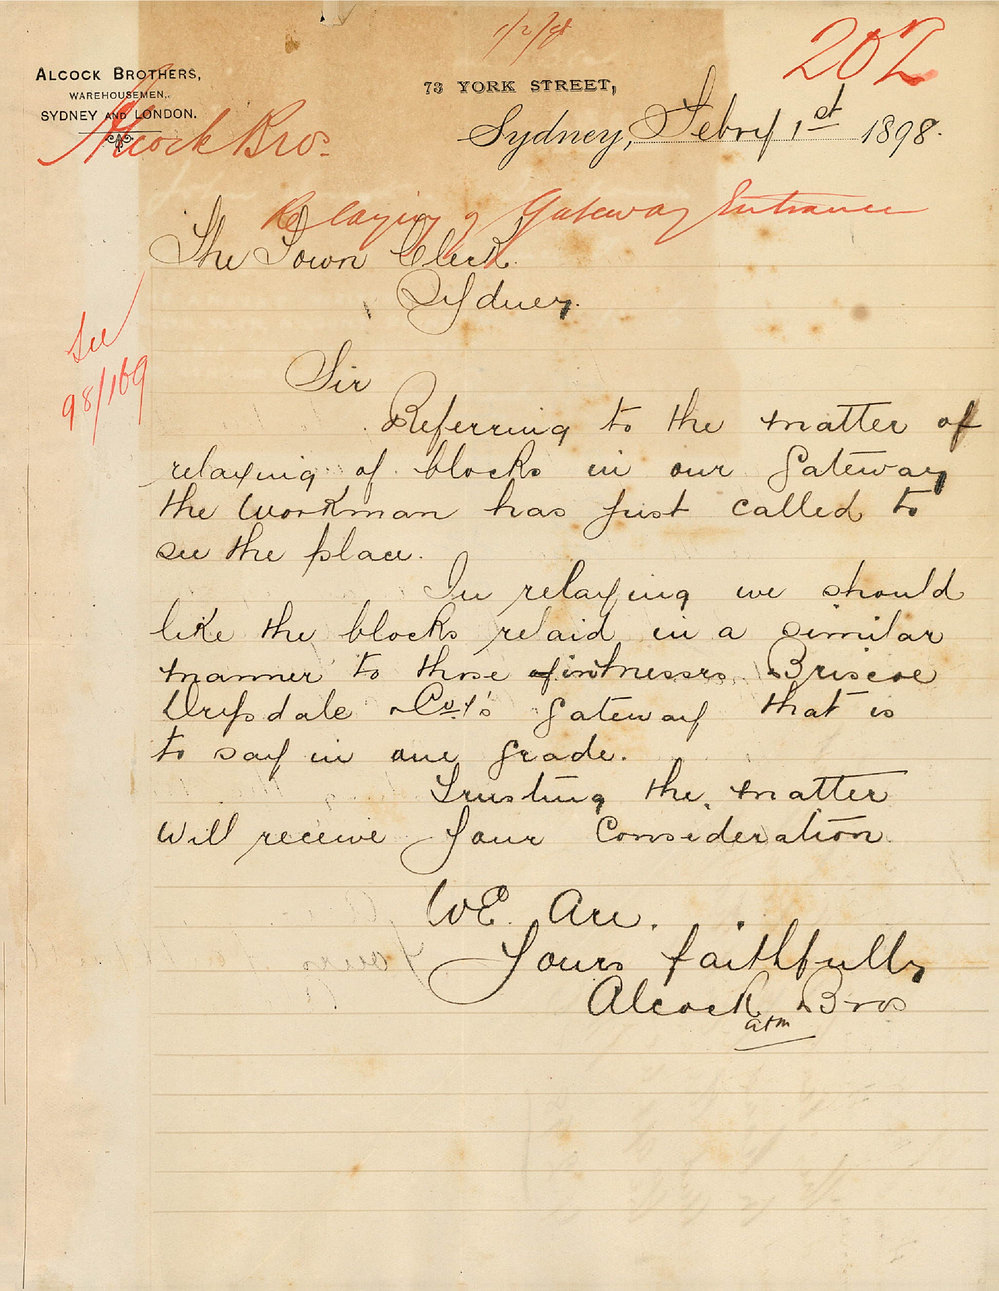 1/2/98
202
ALCOCK BROTHERS,
WAREHOUSEMEN.
SYDNEY AND LONDON.
73 YORK STREET,
Alcock Bros.
Sydney, Febry 1st 1898.
Relaying of Gateway Entrance
The Town Clerk
Sydney.
See
98/169
Sir
Referring to the matter of
relaying of blocks in our gateway
the workman has just called to
see the place.
In relaying we should
like the blocks relaid in a similar
manner to those of Messrs. Briscoe
Drysdale & Coy's gateway that is
to say in one grade.
Trusting the matter
will receive your consideration
WE Are.
Yours faithfully
Alcock Bros